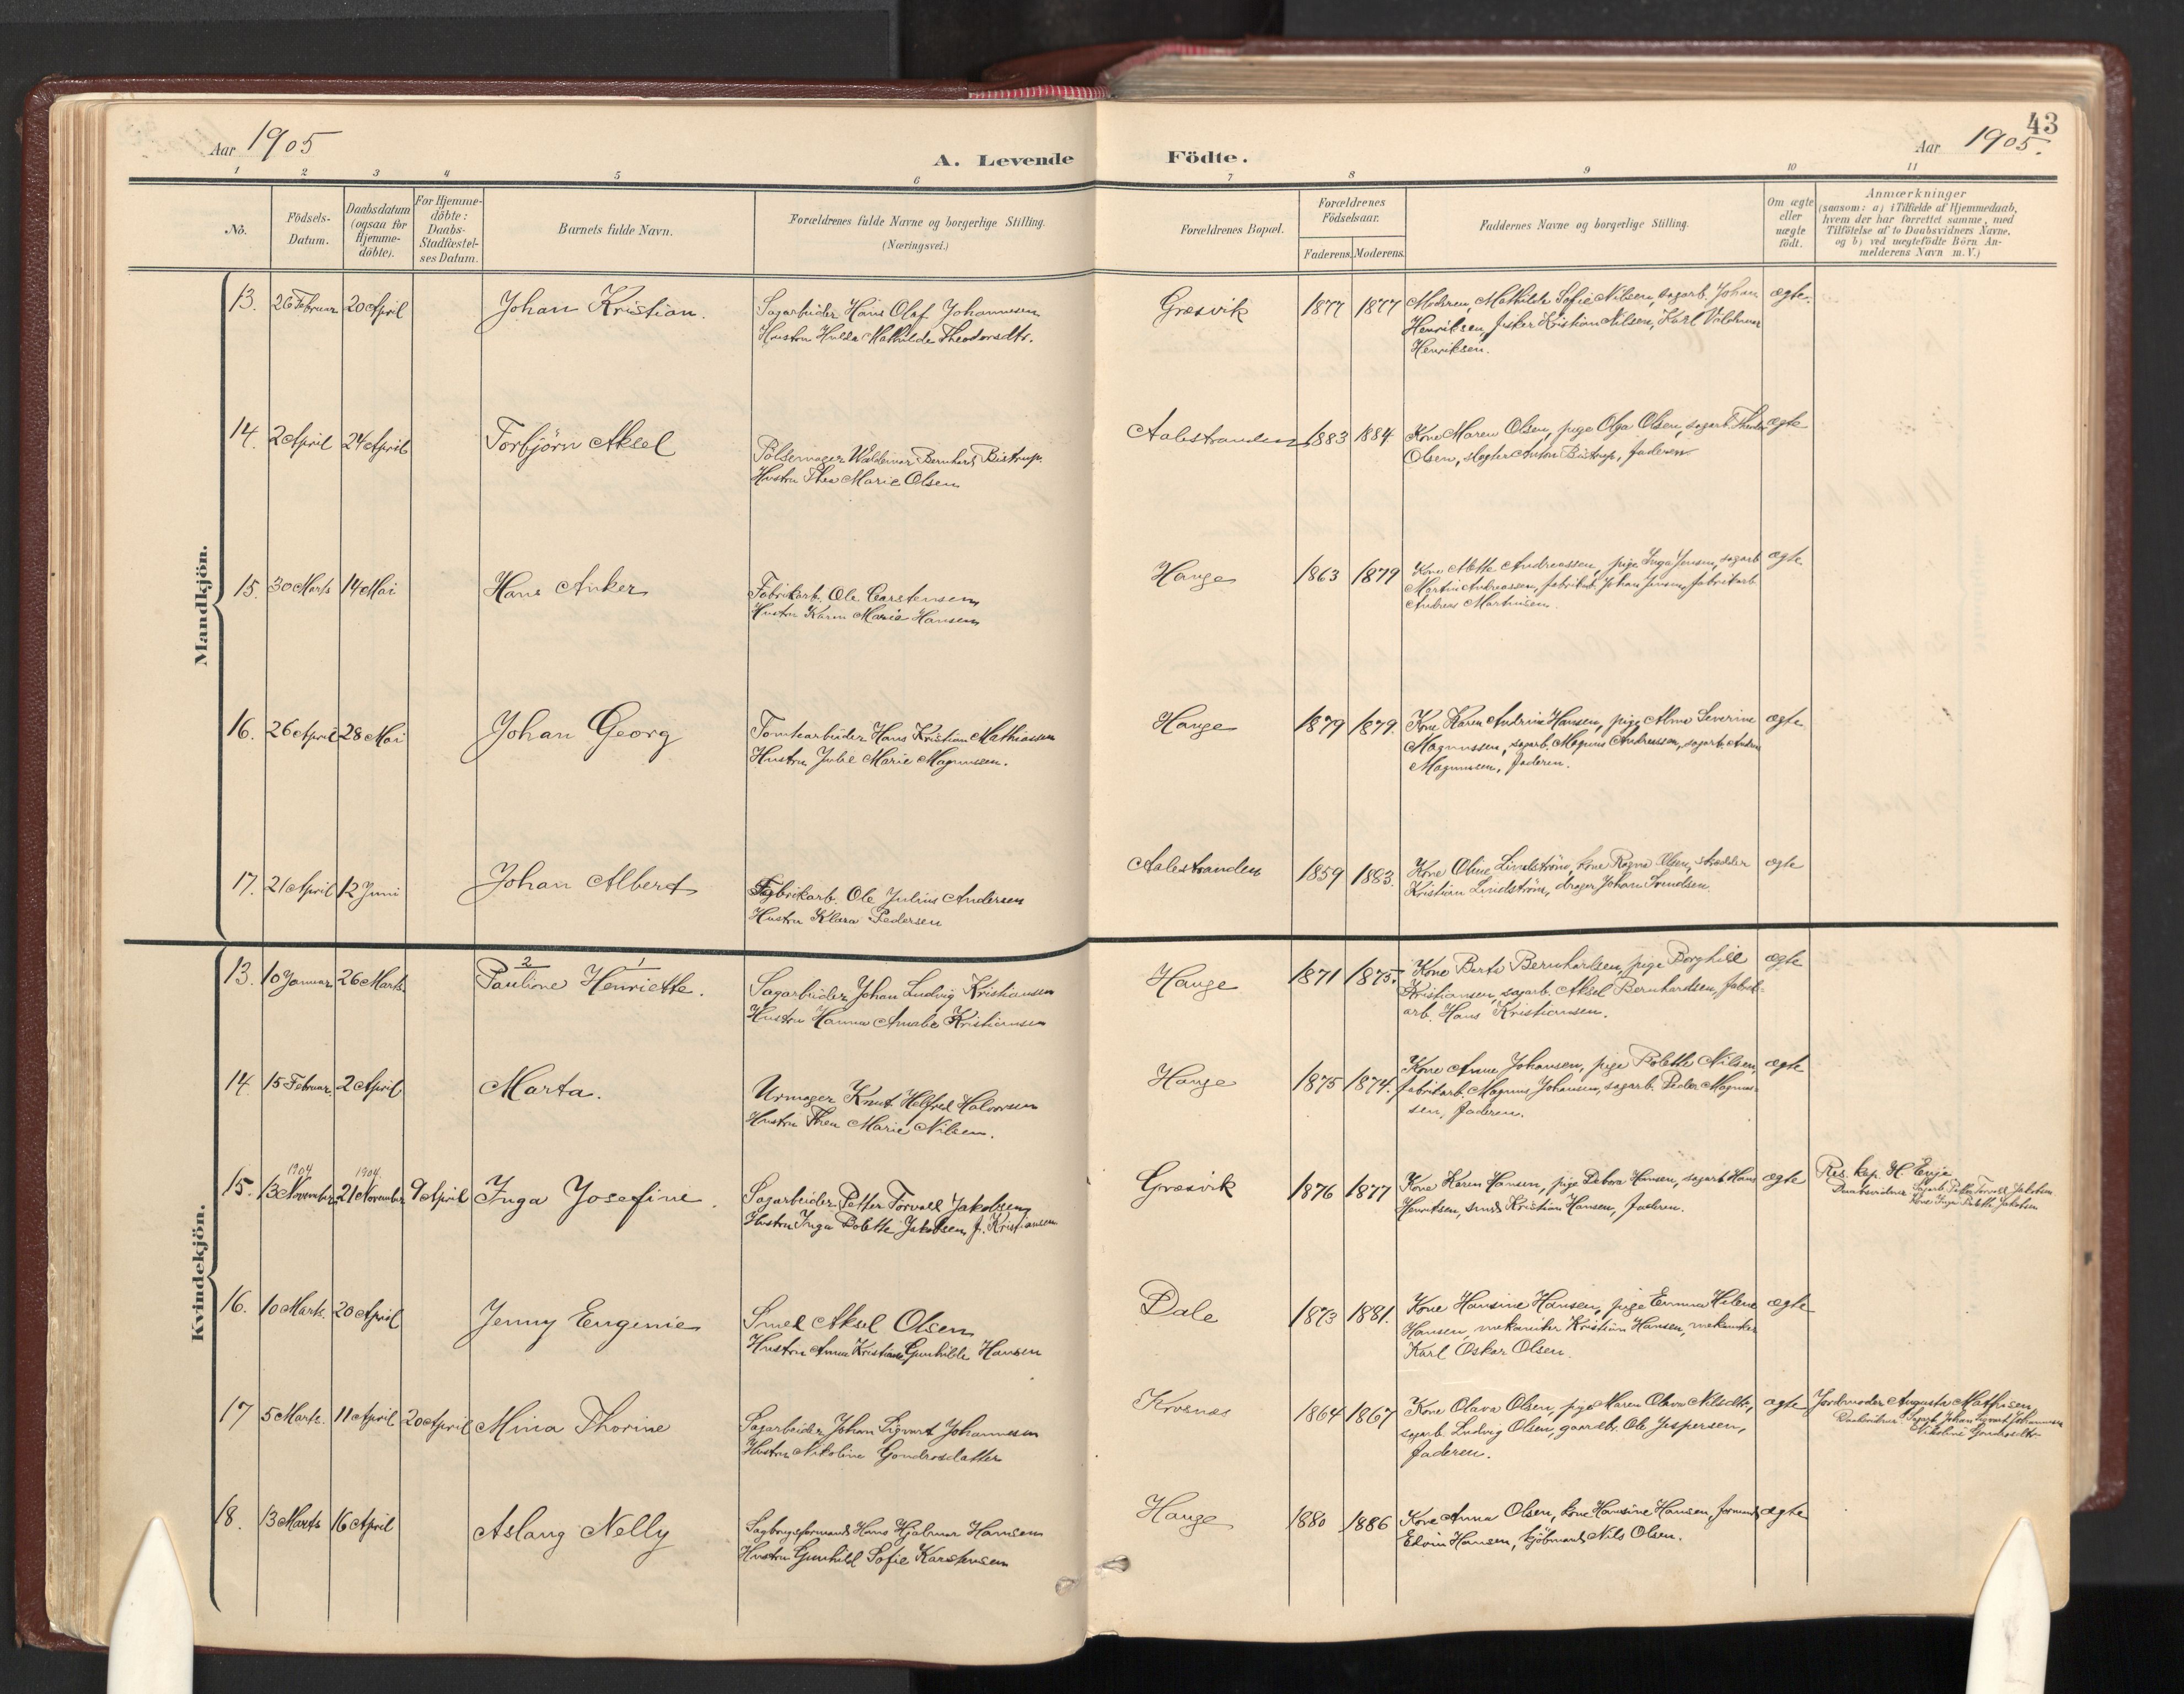 Aar 1905
A. Levende Födte.
43
Aar 1905.
1 2 3 4 5 6 7 8 9 10 11
Nö.
Födsels-
Datum.
Daabsdatum
(ogsaa for
Hjemme-
döbte).
For Hjemme-
döbte:
Daabs-
Stadfæstel-
ses Datum.
Barnets fulde Navn.
Forældrenes fulde Navne og borgerlige Stilling.
(Næringsvei.)
Forældrenes Bopæl.
Forældrenes
Födselsaar.
Faderens. Moderens.
Faddernes Navne og borgerlige Stilling.
Om ægte
eller
uægte
födt.
Anmærkninger
(saasom: a) i Tilfælde af Hjemmedaab,
hvem der har forrettet samme, med
Tilföielse af to Daabsvidners Navne,
og b) ved uegtefödte Börn An-
melderens Navn m.V.)
Mandkjön.
13. 26 Februar 20 April Johan Kristian. Sagarbeider Hans Olaf Johannesen
Hustru Hulda Mathilde Theodorsdtr.
Græsvik 1877 1877 Moderen, Mathilde Sofie Nilsen, sagarb. Johan ægte.
Henriksen, fisker Kristian Nilsen, Karl Valdemar
Henriksen.
14. 2 April 24 April Torbjörn Aksel Pölsemager Waldemar Bernhard Bistrup.
Hustru Thea Marie Olsen
Aalestranden 1883 1884 Kone Maren Olsen, pige Olga Olsen, sagarb. ægte
Olsen, slagter Anton Bistrup, faderen
15. 30 Marts 14 Mai Hans Anker Fabrikarb. Ole Carstensen
Hustru Karen Marie Hansen
Hauge 1863 1879 Kone Mette Andreassen, pige Inga Jensen, sagarb ægte
Martin Andreassen, fabrikarb. Johan Jensen, fabrikarb
Andreas Martinsen.
16. 26 April 28 Mai Johan Georg Tomtearbeider Hans Kristian Mathiassen
Hustru Julie Marie Magnussen.
Hauge 1879 1879. Kone Karen Andrine Hansen, pige Alma Severine ægte
Magnussen, sagarb. Magnus Andreassen, sagarb. Anton
Magnussen, faderen.
17. 21 April 12 Juni Johan Albert Fabrikarb. Ole Julius Andersen
Hustru Klara Pedersen
Aalestranden 1859 1883. Kone Oline Lindström, kone Ragna Olsen, skrædder ægte
Kristian Lindström, drager Johan
Kvindekjön.
2 1
13. 10 Januar 26 Marts Pauline Henriette. Sagarbeider Johan Ludvig Kristiansen
Hustru Hanna Amalie Kristiansen
Hauge 1871 1875. Kone Berta Bernhardsen, pige Borghild ægte
Kristiansen, sagarb. Aksel Bernhardsen, fabrik-
arb. Hans Kristiansen.
14. 15 Februar 2 April Marta. Urmager Knut Helfred Halvorsen
Hustru Thea Marie Nilsen.
Hauge 1875 1874. Kone Anne Johansen, pige Bolette Nilsen, ægte
fabrikarb. Magnus Johansen, sagarb. Peder Magnus-
sen, faderen.
1904 1904
15. 13 November 21 November 9 April Inga Josefine. Sagarbeider Petter Torvald Jakobsen
Hustru Inga Bolette Jakobsen f. Kristiansen
Græsvik 1876 1877 Kone Karen Hansen, pige Debora Hansen, sagarb Hans ægte
Henriksen, smed Kristian Hansen, faderen.
Res. kap. H. Evje
Daabsvidner Sagarb. Petter Torvald Jakobsen
Kone Inga Bolette Jakobsen
16. 10 Marts. 20 April Jenny Eugenie Smed Aksel Olsen
Hustru Anna Kristiane Gunhilde Hansen
Dale 1873 1881. Kone Hansine Hansen, pige Emma Helene ægte
Hansen, mekaniker Kristian Hansen, mekaniker
Karl Oskar Olsen.
17 5 Marts. 11 April 20 April Mina Thorine Sagarbeider Johan Sigvart Johannesen
Hustru Nikoline Gondrosdatter
Krosnes 1864 1867 Kone Olava Olsen, pige Maren Olava Nilsdtr, ægte
sagarb. Ludvig Olsen, gaardbr. Ole Jespersen,
faderen.
Jordmoder Augusta Mathisen
Daabsvidner Sagarb. Johan Sigvart Johannesen
Nikoline Gondrosdtr
18. 13 Marts 16 April Aslaug Nelly Sagbrugsformand Hans Hjalmar Hansen
Hustru Gunhild Sofie Karstensen
Hauge 1880 1886 Kone Anna Olsen, kone Hansine Hansen, formand ægte
Edvin Hansen, kjöbmand Nils Olsen.